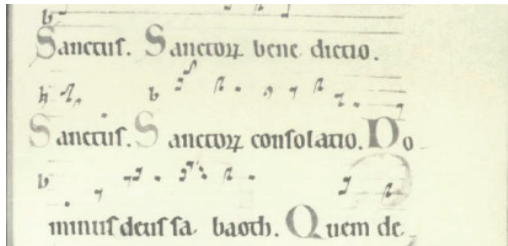 Sanctuſ. Sanctoꝝ bene dictio.
Sanctuſ. Sanctoꝝ conſolatio. Do
minuſ deuſ ſa baoth. Quem de